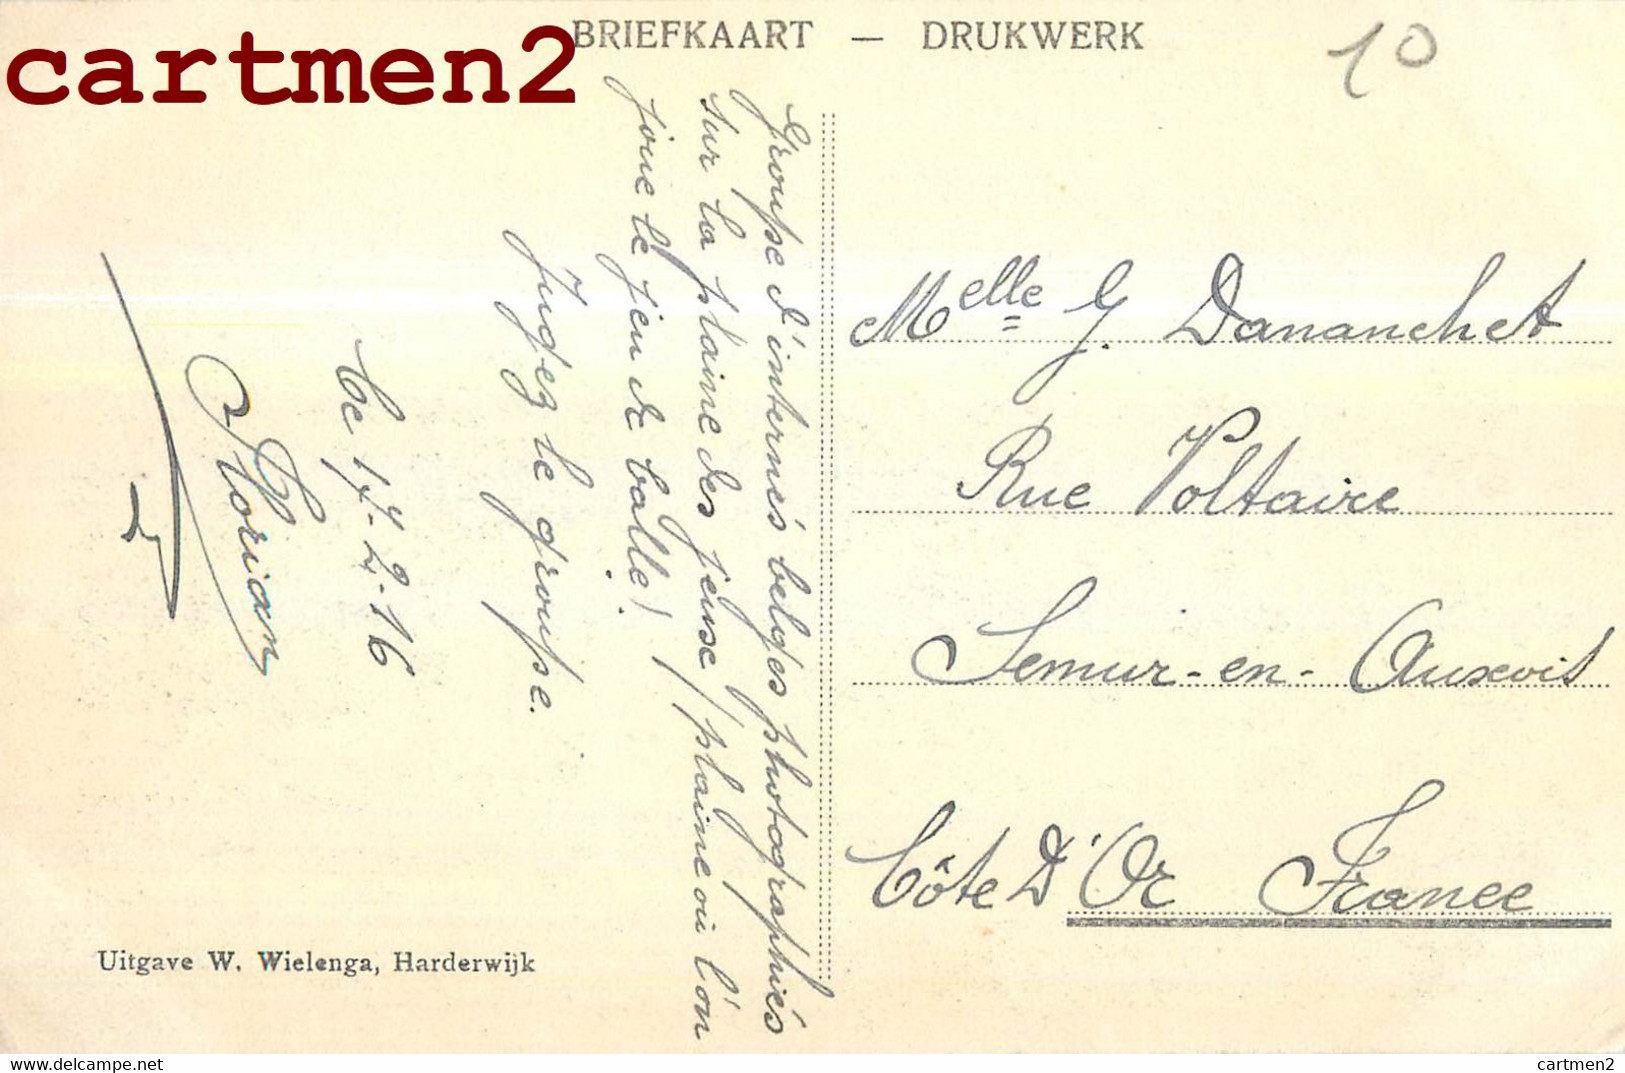 cartmen2
BRIEFKAART — DRUKWERK
10
Groupe d'internés belges photographiés
sur la plaine des jeuse / plaine où l'on
joue le jeu de balle /
Jugez le groupe.
Ce 17-2-16
Florian
Melle G. Dananchet
Rue Voltaire
Semur-en-Auxois
Côte D'Or France
Uitgave W. Wielenga, Harderwijk
https://www.delcampe.net
cartmen2